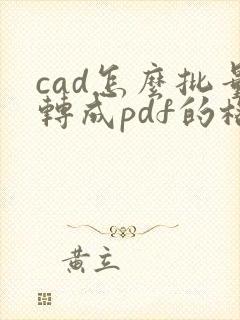 cad怎麼批量
轉成pdf的格
黃立